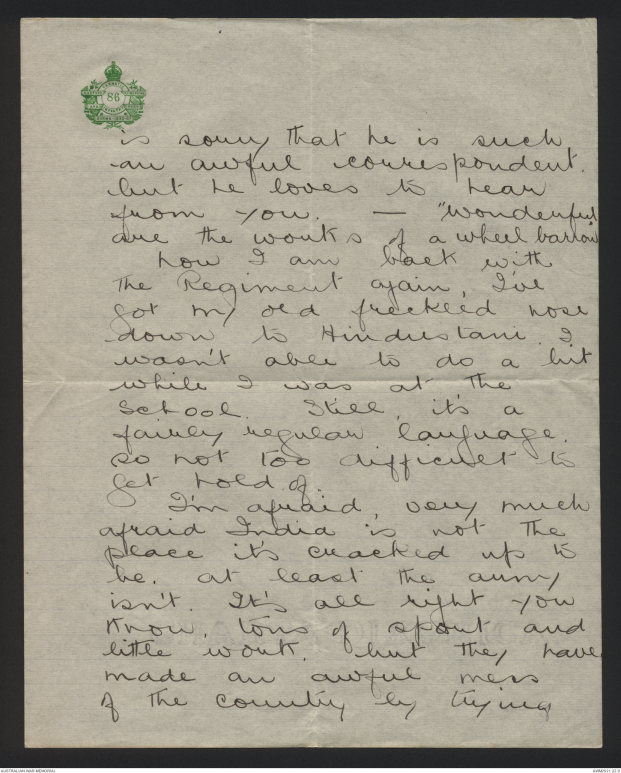 86
is sorry that he is such
an awful correspondent.
but he loves to hear
from you. — "Wonderful
are the works of a wheel barrow
Now I am back with
The Regiment again, I've
got my old freckled nose
down to Hindustani. I
wasn't able to do a bit
while I was at the
School. Still, it's a
fairly regular language.
so not too difficult to
get hold of.
I'm afraid, very much
afraid India is not the
place it's cracked up to
be. at least the army
isn't. It's all right you
know, tons of sport and
little work. but they have
made an awful mess
of the country by trying
AUSTRALIAN WAR MEMORIAL